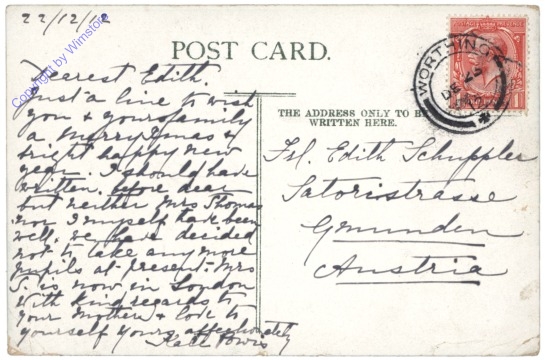 22/12/12
POST CARD.
Dearest Edith.
Just a line to wish
you & your family
a Merry Xmas &
bright happy new
year. I should have
written before dear
but neither Mrs Thomas
nor I myself have been
well, we have decided
not to take any more
pupils at present. Mrs
T. is now in London
With kind regards to
your Mother & love to
yourself yours affectionately
Kate
THE ADDRESS ONLY TO BE
WRITTEN HERE.
Frl. Edith Schuppler
Satoristrasse
Gmunden
Austria
WORTHING
DE
1
Copyright by Wimstore